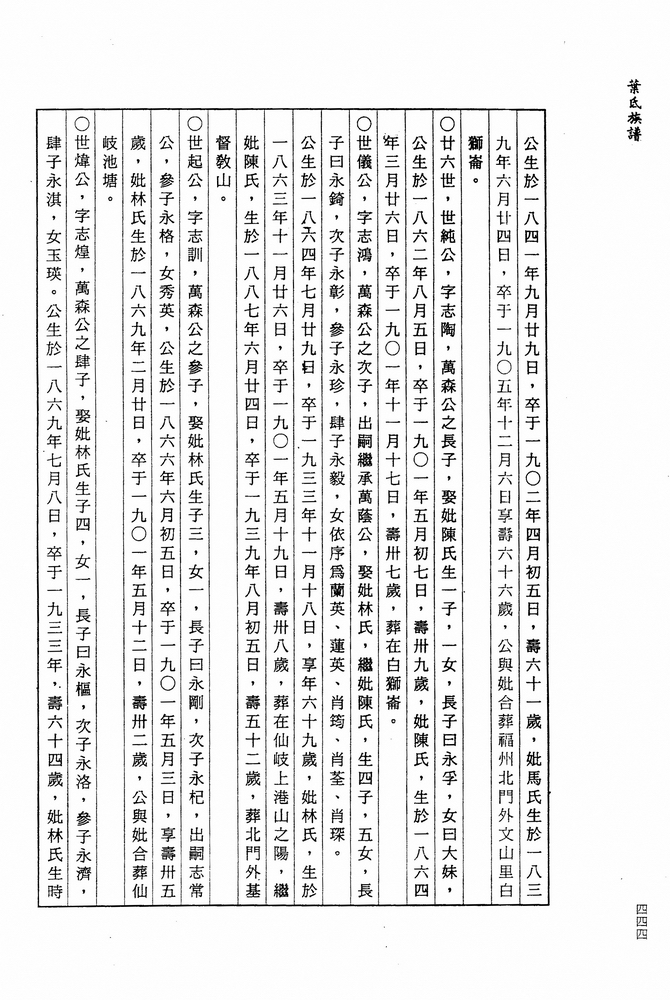 葉氏族譜
公生於一八四一年九月廿九日，卒于一九〇二年四月初五日，壽六十一歲，妣馬氏生於一八三
九年六月廿四日，卒于一九〇五年十二月六日享壽六十六歲，公與妣合葬福州北門外文山里白
獅崙。
〇廿六世，世純公，字志陶，萬森公之長子，娶妣陳氏生一子，一女，長子曰永孚，女曰大妹，
公生於一八六二年八月五日，卒于一九〇一年五月初七日，壽卅九歲，妣陳氏，生於一八六四
年三月廿六日，卒于一九〇一年十一月十七日，壽卅七歲，葬在白獅崙。
〇世儀公，字志鴻，萬森公之次子，出嗣繼承萬蔭公，娶妣林氏，繼妣陳氏，生四子，五女，長
子曰永錡，次子永彰，參子永珍，肆子永毅，女依序為蘭英、蓮英、肖筠、肖荃、肖琛。
公生於一八六四年七月廿九日，卒于一九三三年十一月十八日，享年六十九歲，妣林氏，生於
一八六三年十一月廿六日，卒于一九〇一年五月十九日，壽卅八歲，葬在仙岐上港山之陽，繼
妣陳氏，生於一八八七年六月廿四日，卒于一九三九年八月初五日，壽五十二歲，葬北門外基
督教山。
〇世起公，字志訓，萬森公之參子，娶妣林氏生子三，女一，長子曰永剛，次子永杞，出嗣志常
公，參子永格，女秀英，公生於一八六六年六月初五日，卒于一九〇一年五月三日，享壽卅五
歲，妣林氏生於一八六九年二月廿日，卒于一九〇一年五月十二日，壽卅二歲，公與妣合葬仙
岐池塘。
〇世煒公，字志煌，萬森公之肆子，娶妣林氏生子四，女一，長子曰永樞，次子永洛，參子永濟，
肆子永淇，女玉瑛。公生於一八六九年七月八日，卒于一九三三年，壽六十四歲，妣林氏生時
四四四